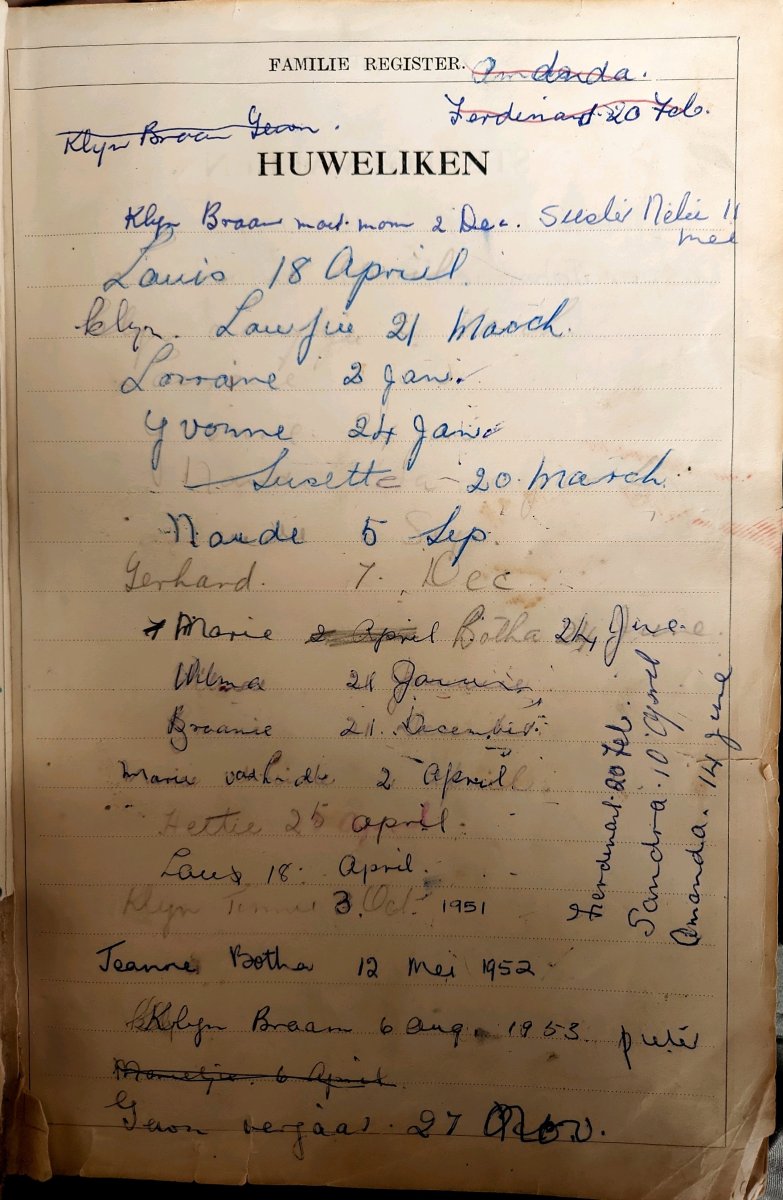 FAMILIE REGISTER.
Amanda.
Ferdinand. 20 Feb.
Klyn Braam Gewon.
HUWELIKEN
Klyn Braam mom 2 Dec. Suster 11
Louis 18 Apriil.
klyn. Lowfie 21 March.
Lorraine 2 Jan.
Yvonne 24 Jan
Susette - 20 March
Naude 5 Sep.
Gerhard. 7. Dec
Marie 2 April Botha 24 June.
Wilma 21
Braamie 21. December
Marie 2 Aprill
Hettie 25 april.
Louis 18. April.
Klyn Tinnie 3. Oct. 1951
Jeanne Botha 12 Mei 1952
Klyn Braam 6 Aug. 1953. pieter
6 April
Gewon verjaar. 27 Nov.
Ferdinand. 20 Feb.
Sandra. 10 April
Amanda. 14 June